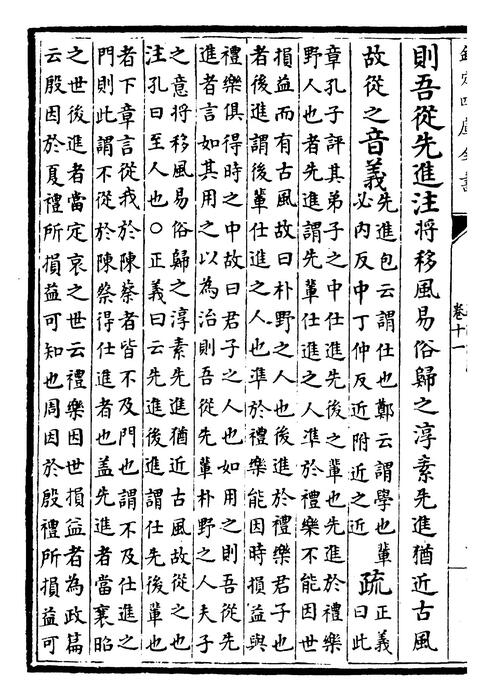 欽定四庫全書
卷十一
則吾從先進注將移風易俗歸之淳素先進猶近古風
故從之音義先進包云謂仕也鄭云謂學也輩
必内反中丁仲反近附近之近
疏正義
曰此
章孔子評其弟子之中仕進先後之輩也先進於禮樂
野人也者先進謂先輩仕進之人凖於禮樂不能因世
損益而有古風故曰朴野之人也後進於禮樂君子也
者後進謂後輩仕進之人也凖於禮樂能因時損益與
禮樂俱得時之中故曰君子之人也如用之則吾從先
進者言如其用之以為治則吾從先輩朴野之人夫子
之意將移風易俗歸之淳素先進猶近古風故從之也
注孔曰至人也○正義曰云先進後進謂仕先後輩也
者下章言從我於陳蔡者皆不及門也謂不及仕進之
門則此謂不從於陳蔡得仕進者也盖先進者當襄昭
之世後進者當定哀之世云禮樂因世損益者為政篇
云殷因於夏禮所損益可知也周因於殷禮所損益可